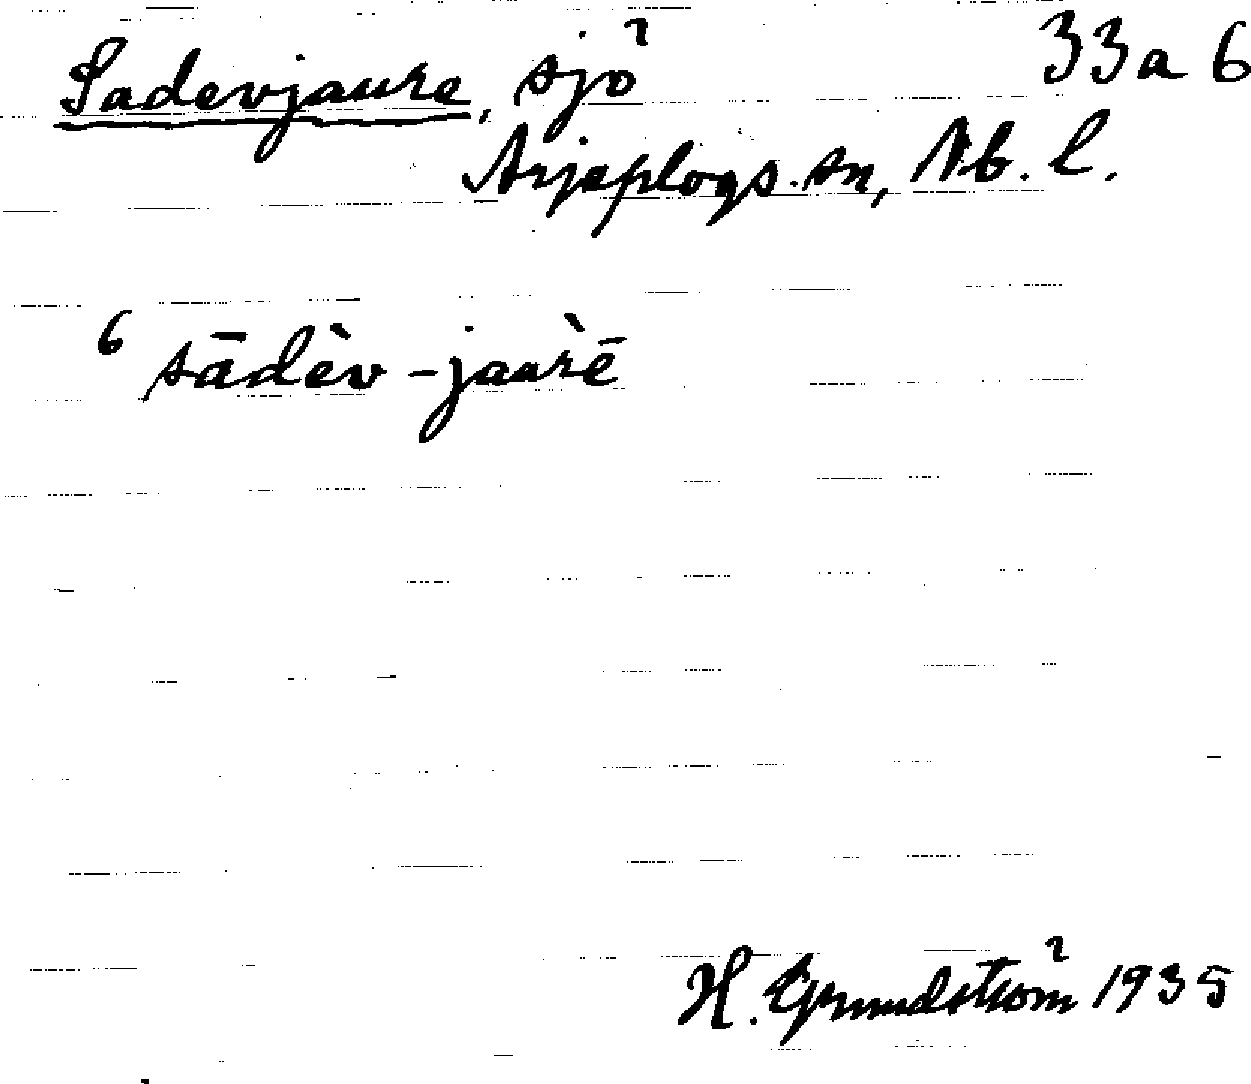 Sadevjaure, sjö 33a 6
Arjeplogs sn, Nb. l.
6 sādèv-jaùrē
H. Grundström 1935